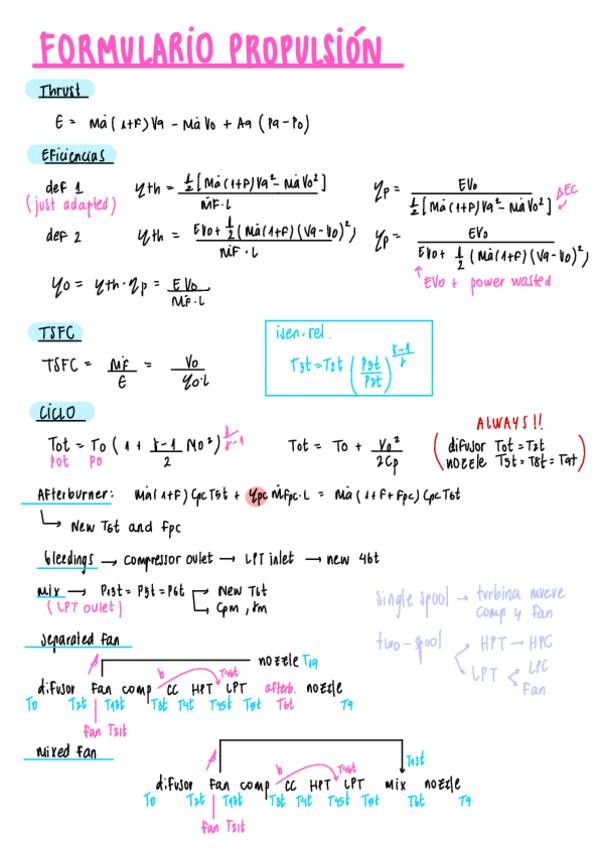 FORMULARIO PROPULSIÓN
Thrust
E = ṁa(1+F)V9 - ṁaV0 + A9(P9-P0)
Eficiencias
def 1 ηth = ½[ṁa(1+F)V9² - ṁaV0²] / ṁF·L ηp = EV0 / ½[ṁa(1+F)V9² - ṁaV0²] ΔEC
(just adapted)
def 2 ηth = EV0 + ½(ṁa(1+F)(V9-V0)²) / ṁF·L ηp = EV0 / EV0 + ½(ṁa(1+F)(V9-V0)²)
↑ EV0 + power wasted
η0 = ηth·ηp = EV0 / ṁF·L
TSFC
TSFC = ṁF / E = V0 / η0·L
isen. rel.
T3t = T2t (P3t / P2t)^(γ-1 / γ)
CICLO
T0t = T0 (1 + γ-1 / 2 M0²)^(γ / γ-1) T0t = T0 + V0² / 2Cp
P0t P0
ALWAYS!!
(difusor T0t = T2t
nozzle T5t = T8t = T9t)
Afterburner: ṁa(1+F)CpcT5t + ηpc ṁFpc·L = ṁa(1+F+Fpc)CpcT6t
↳ New T6t and Fpc
bleedings → compressor oulet → LPT inlet → new 46t
mix → P13t = P5t = P6t → New T6t
(LPT oulet) ↳ Cpm, γm
single spool → turbina mueve
comp y fan
two-spool HPT → HPC
LPT LPC
Fan
separated fan
nozzle T19
b T45t
difusor fan comp CC HPT LPT afterb. nozzle
T0 T2t T13t T3t T4t T45t T5t T6t T9
fan T21t
mixed fan
T13t
b T45t
difusor Fan comp CC HPT LPT mix nozzle
T0 T2t T13t T3t T4t T45t T5t T6t T9
fan T21t